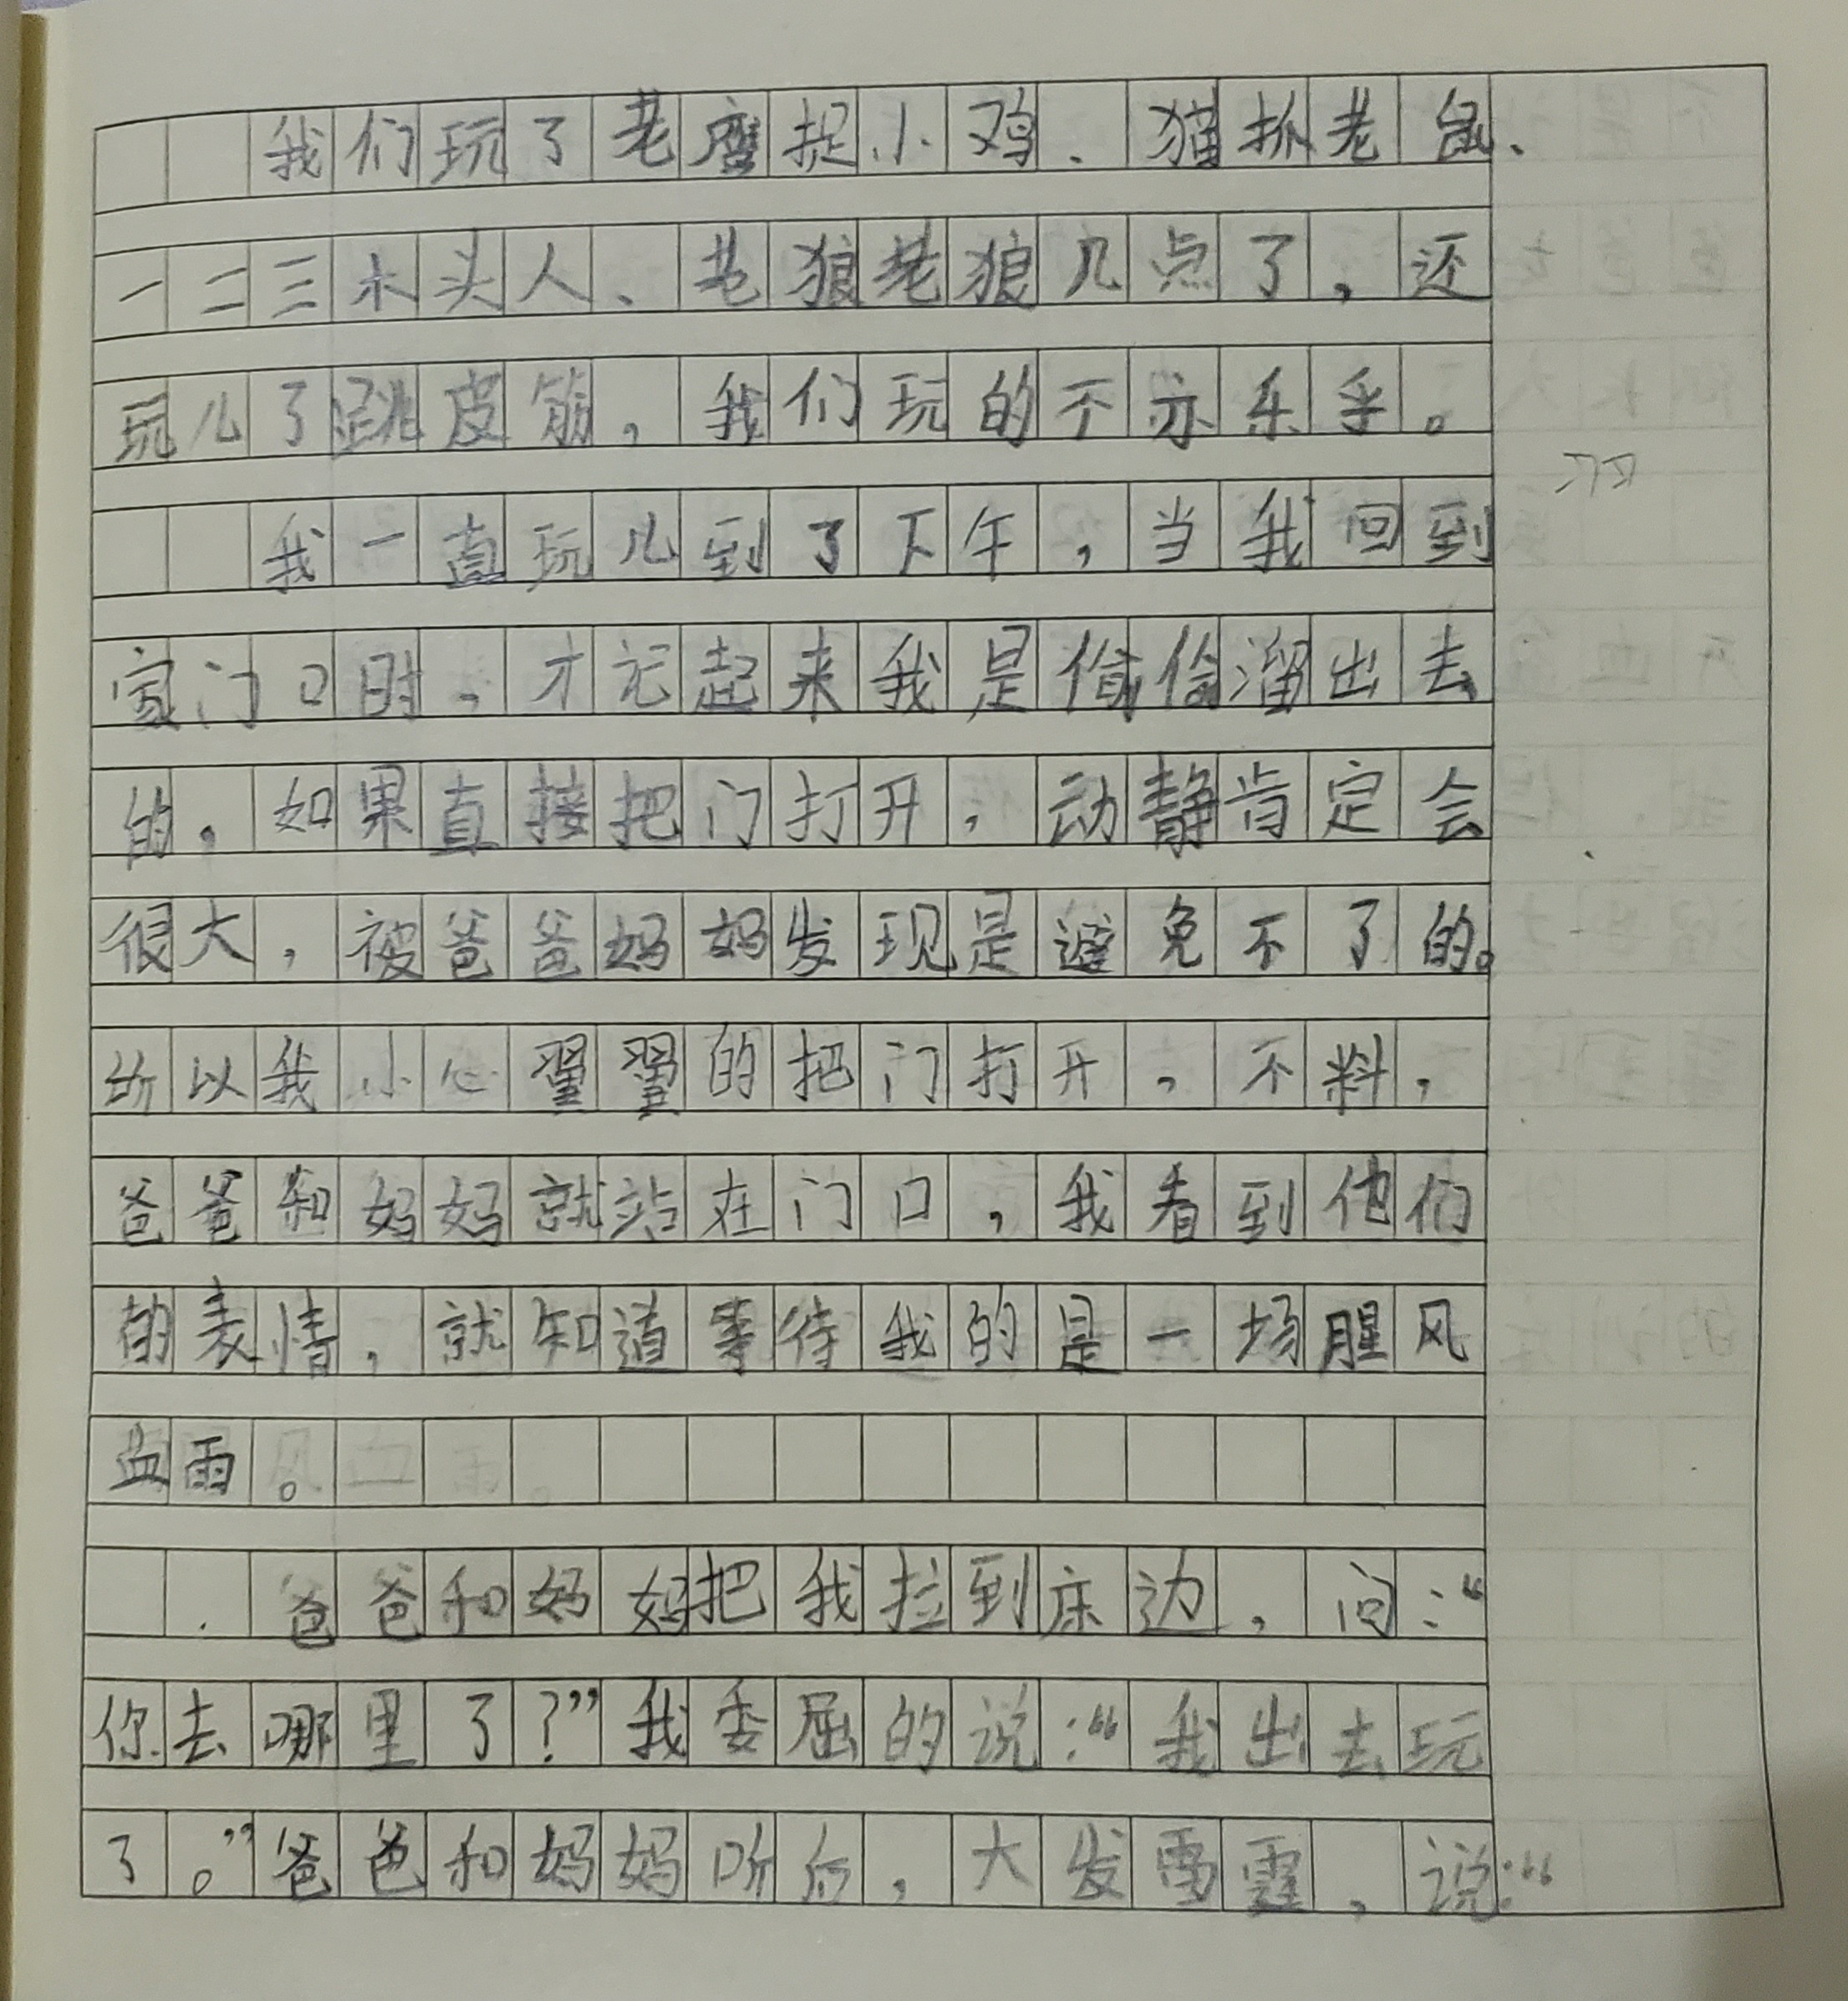 我们玩了老鹰捉小鸡、猫抓老鼠、
一二三木头人、老狼老狼几点了，还
玩儿了跳皮筋，我们玩的不亦乐乎。
我一直玩儿到了下午，当我回到
家门口时，才记起来我是偷偷溜出去
的，如果直接把门打开，动静肯定会
很大，被爸爸妈妈发现是避免不了的。
所以我小心翼翼的把门打开，不料，
爸爸和妈妈就站在门口，我看到他们
的表情，就知道等待我的是一场腥风
血雨。
爸爸和妈妈把我拉到床边，问：“
你去哪里了？”我委屈的说：“我出去玩
了。”爸爸和妈妈听后，大发雷霆，说：“